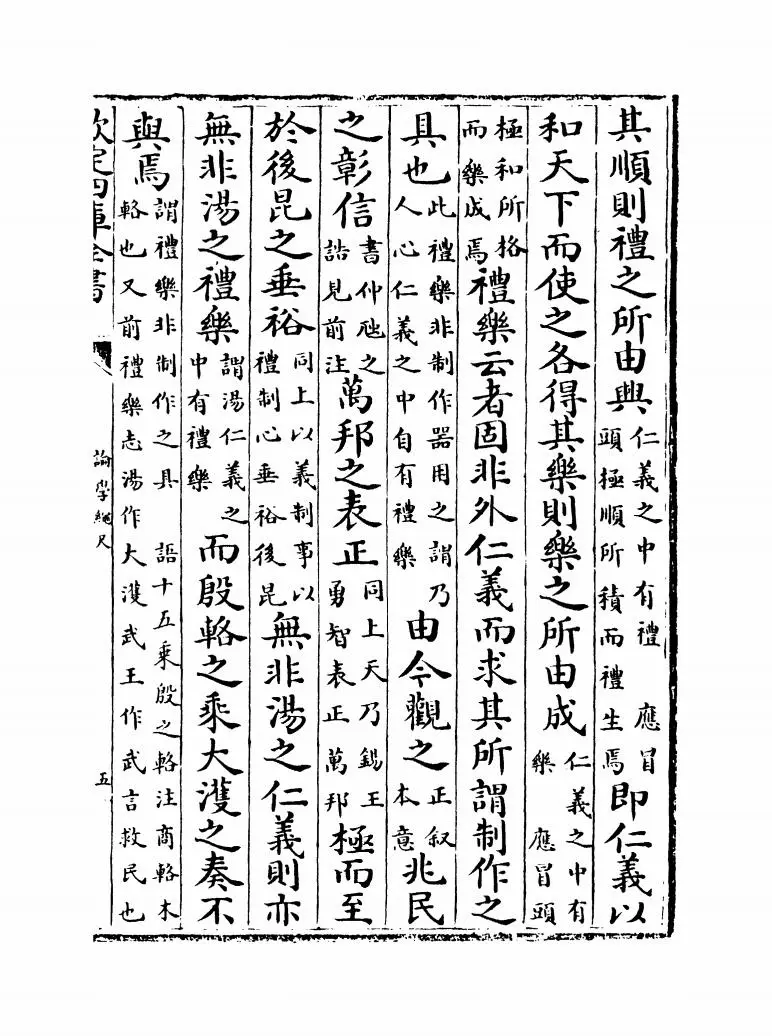 其順則禮之所由興仁義之中有禮 應冒頭極順所積而禮生焉即仁義以
和天下而使之各得其樂則樂之所由成仁義之中有樂 應冒頭
極和所格而樂成焉禮樂云者固非外仁義而求其所謂制作之
具也此禮樂非制作器用之謂乃人心仁義之中自有禮樂由今觀之正叙本意兆民
之彰信書仲虺之誥見前注萬邦之表正同上天乃錫王勇智表正萬邦極而至
於後昆之垂裕同上以義制事以禮制心垂裕後昆無非湯之仁義則亦
無非湯之禮樂謂湯仁義之中有禮樂而殷輅之乘大濩之奏不
與焉謂禮樂非制作之具 語十五乘殷之輅注商輅木輅也又前禮樂志湯作大濩武王作武言救民也
欽定四庫全書
論學繩尺
五